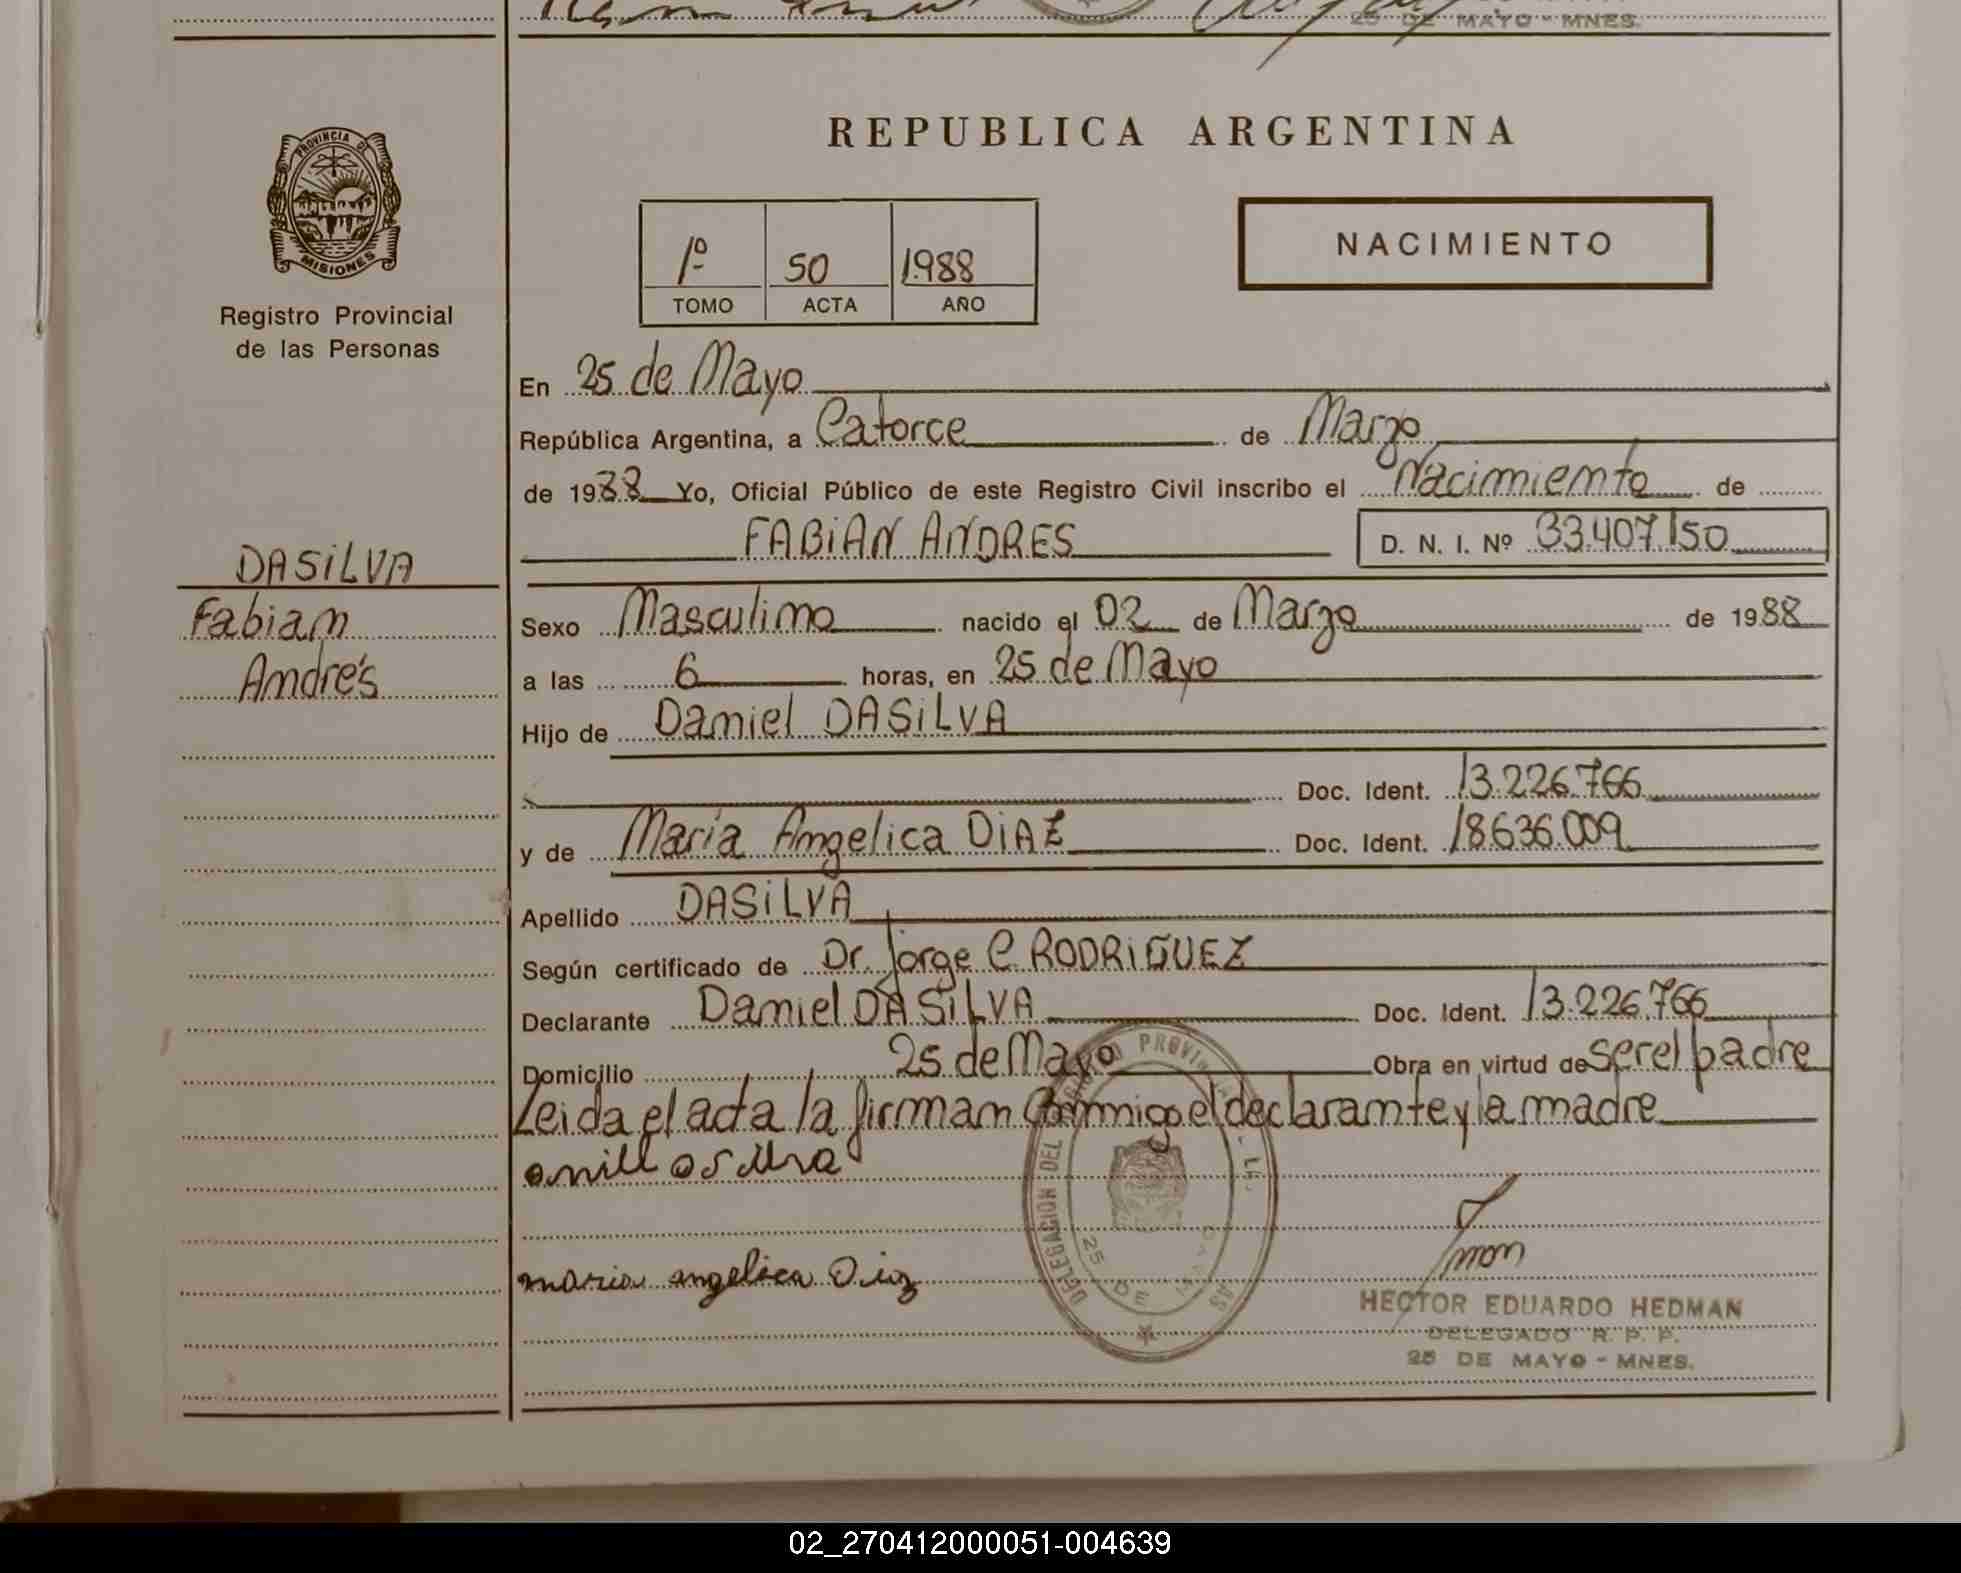 25 DE MAYO - MNES.
PROVINCIA DE
MISIONES
Registro Provincial
de las Personas
DASiLVA
Fabian
Andrés
REPUBLICA ARGENTINA
1º 50 1988
TOMO ACTA AÑO
NACIMIENTO
En 25 de Mayo
República Argentina, a Catorce de Marzo
de 1988 Yo, Oficial Público de este Registro Civil inscribo el Nacimiento de
FABiAN ANDRES D. N. I. Nº 33.407.150
Sexo Masculino nacido el 02 de Marzo de 1988
a las 6 horas, en 25 de Mayo
Hijo de Daniel DASiLVA
Doc. Ident. 13.226.766
y de María Angelica DiAZ Doc. Ident. 18.636.009
Apellido DASiLVA
Según certificado de Dr. Jorge C. RODRiGUEZ
Declarante Daniel DASiLVA Doc. Ident. 13.226.766
Domicilio 25 de Mayo Obra en virtud de ser el padre
Leida el acta la firman conmigo el declarante y la madre
maria angelica Diaz
DELEGACION DEL REGISTRO PROVINCIAL DE LAS
25 DE MAYO
HECTOR EDUARDO HEDMAN
DELEGADO R. P. P.
25 DE MAYO - MNES.
02_270412000051-004639